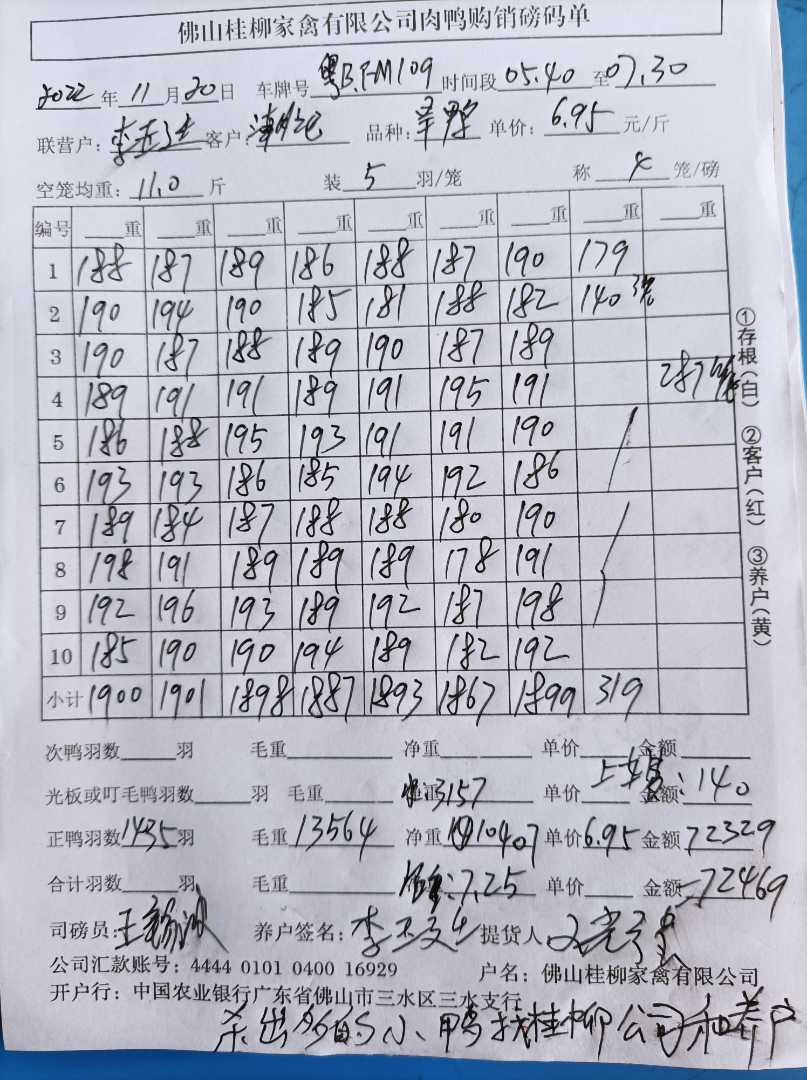 佛山桂柳家禽有限公司肉鸭购销磅码单
2022年11月20日 车牌号 粤B.FM109 时间段 05.40 至 07.30
联营户: 客户: 品种: 单价: 6.95 元/斤
空笼均重: 11.0 斤 装 5 羽/笼 称 4 笼/磅
编号 重 重 重 重 重 重 重 重 重
1 188 187 189 186 188 187 190 179
2 190 194 190 185 181 188 182 140 3笼
3 190 187 188 189 190 187 189
4 189 191 191 189 191 195 191 287笼
5 186 188 195 193 191 191 190
6 193 193 186 185 194 192 186
7 189 184 187 188 188 180 190
8 198 191 189 189 189 178 191
9 192 196 193 189 192 187 198
10 185 190 190 194 189 182 192
小计 1900 1901 1898 1887 1893 1867 1899 319
①存根(白) ②客户(红) ③养户(黄)
次鸭羽数 羽 毛重 净重 单价 金额
光板或叮毛鸭羽数 羽 毛重 3157 单价 金额: 140
正鸭羽数 1435 羽 毛重 13564 净重 10407 单价 6.95 金额 72329
合计羽数 羽 毛重 : 7.25 单价 金额 72469
司磅员: 养户签名: 提货人
公司汇款账号: 4444 0101 0400 16929 户名: 佛山桂柳家禽有限公司
开户行: 中国农业银行广东省佛山市三水区三水支行
杀出 小鸭找桂柳公司和养户